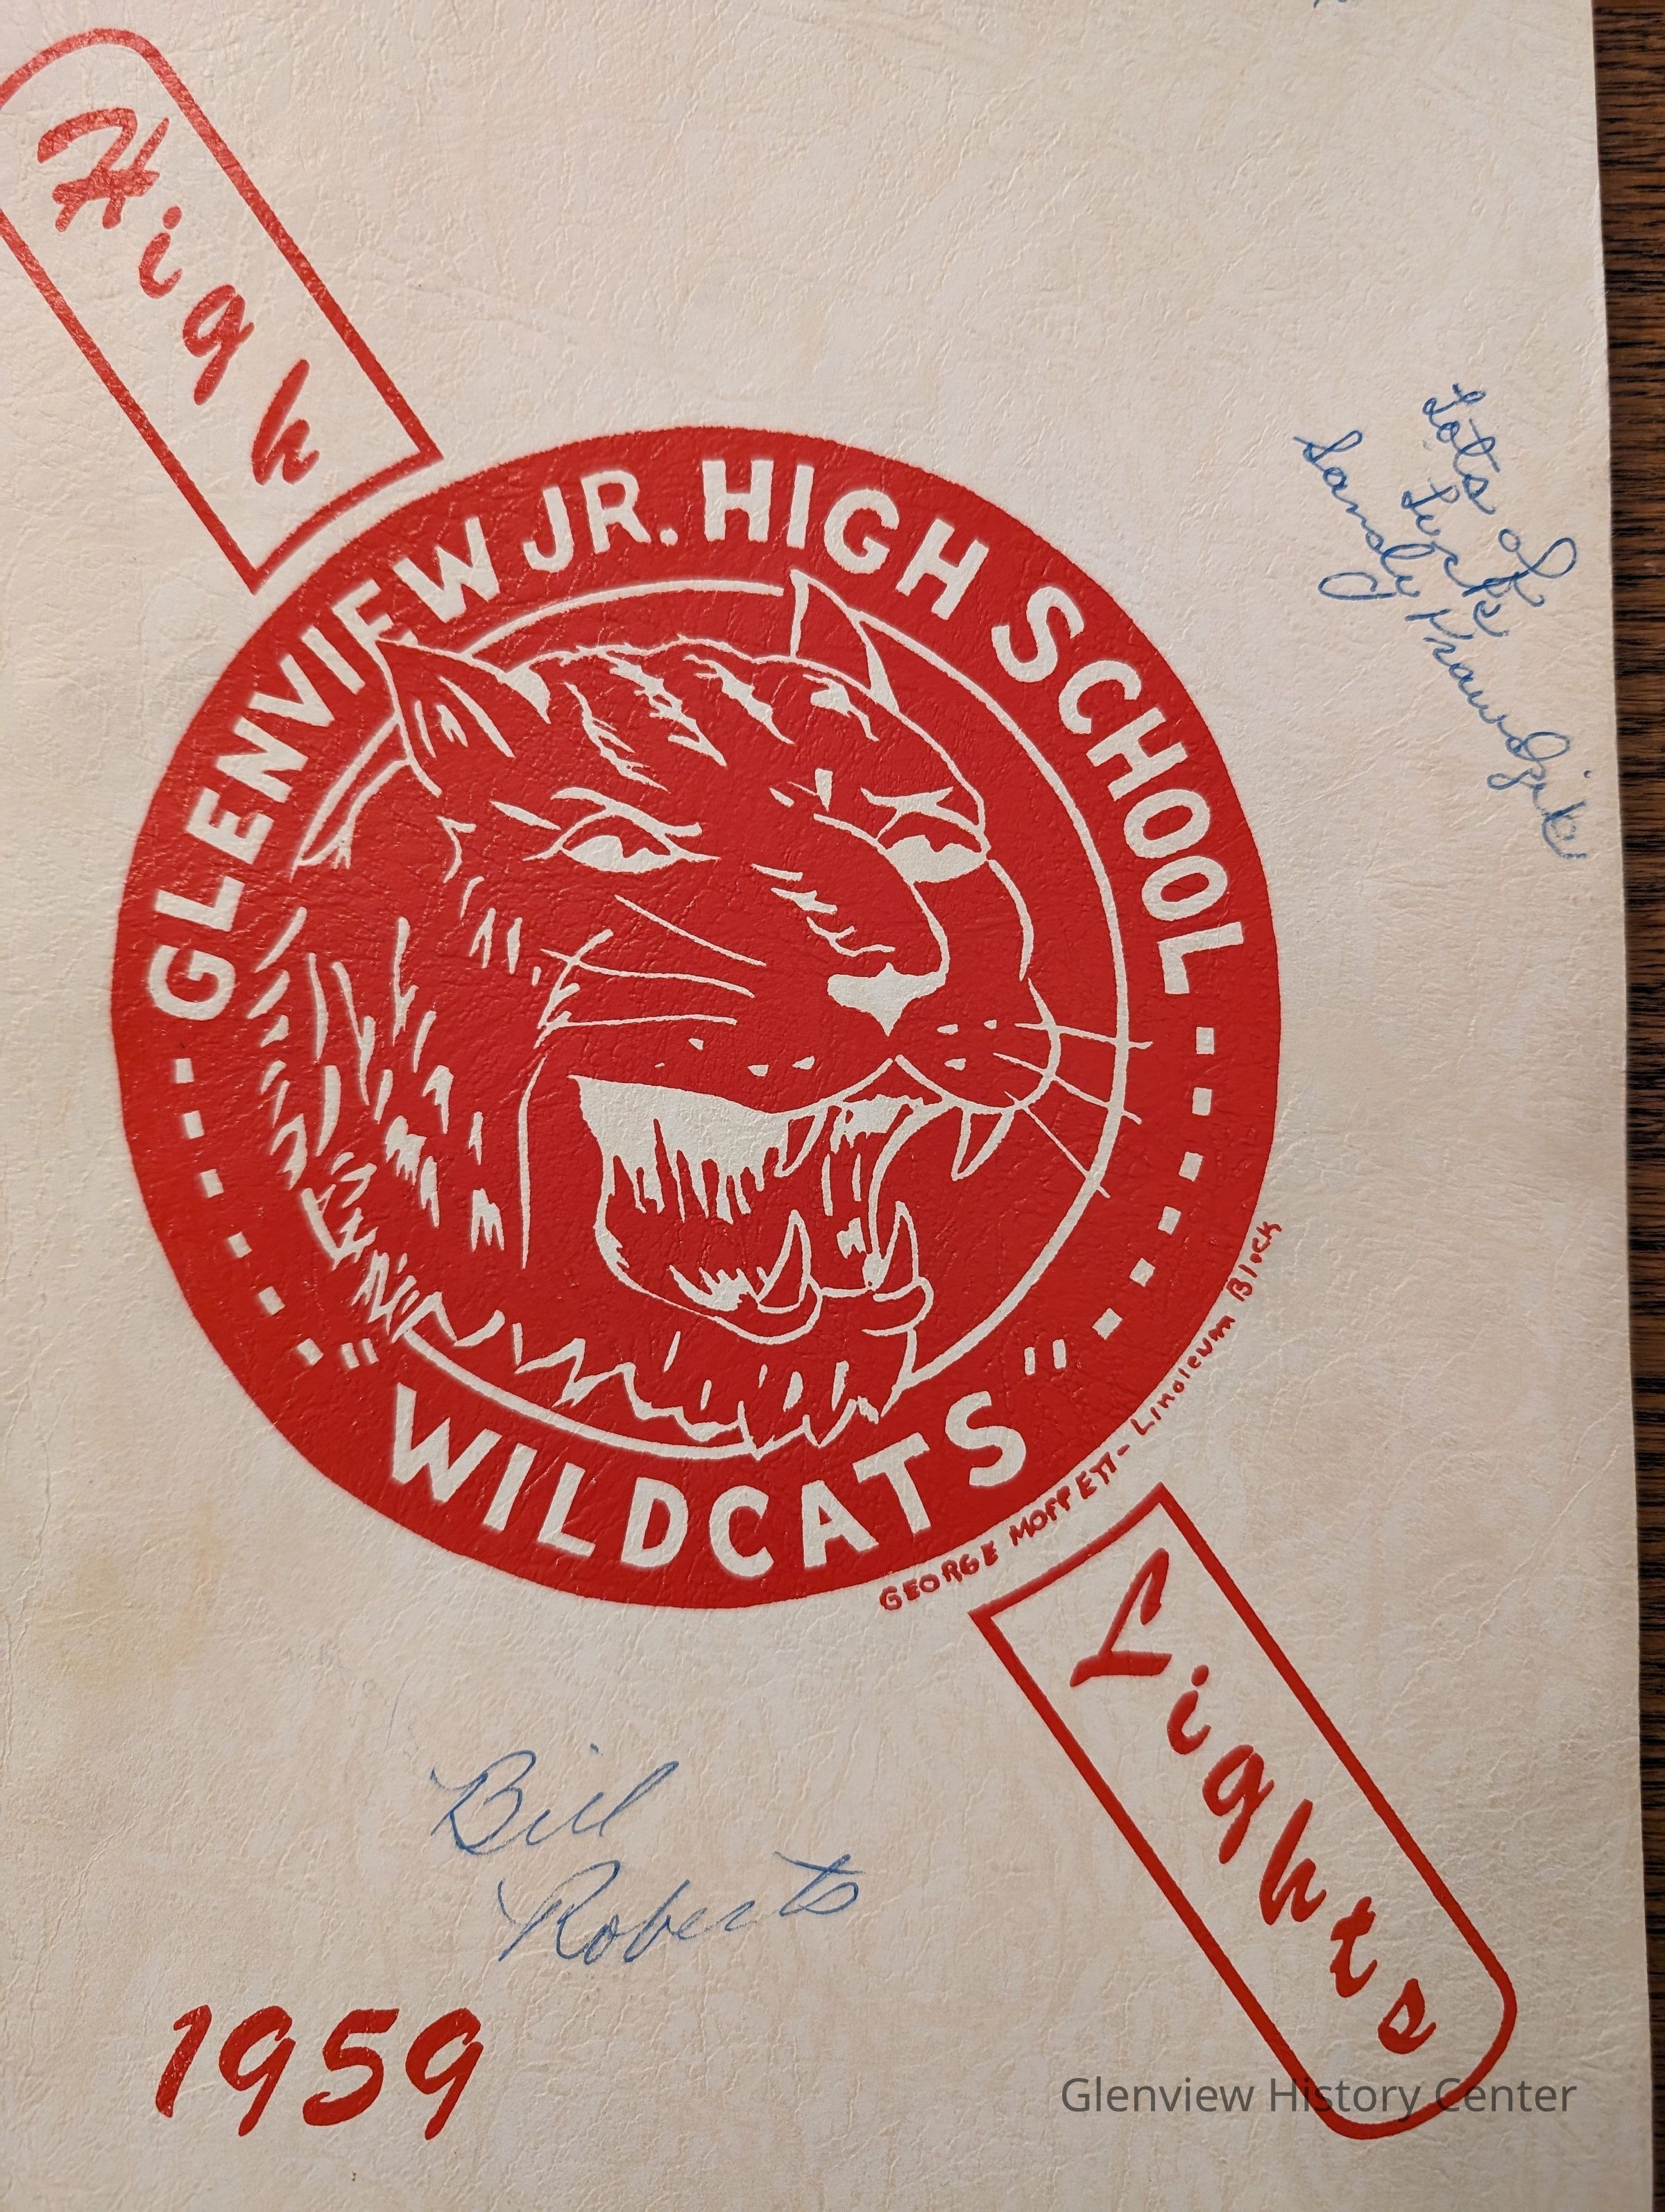 High
GLENVIEW JR. HIGH SCHOOL
"WILDCATS"
GEORGE MOFFETT - Linoleum Block
Lights
Lots of
luck
Sandy Krawdzik
Bill
Roberts
1959
Glenview History Center